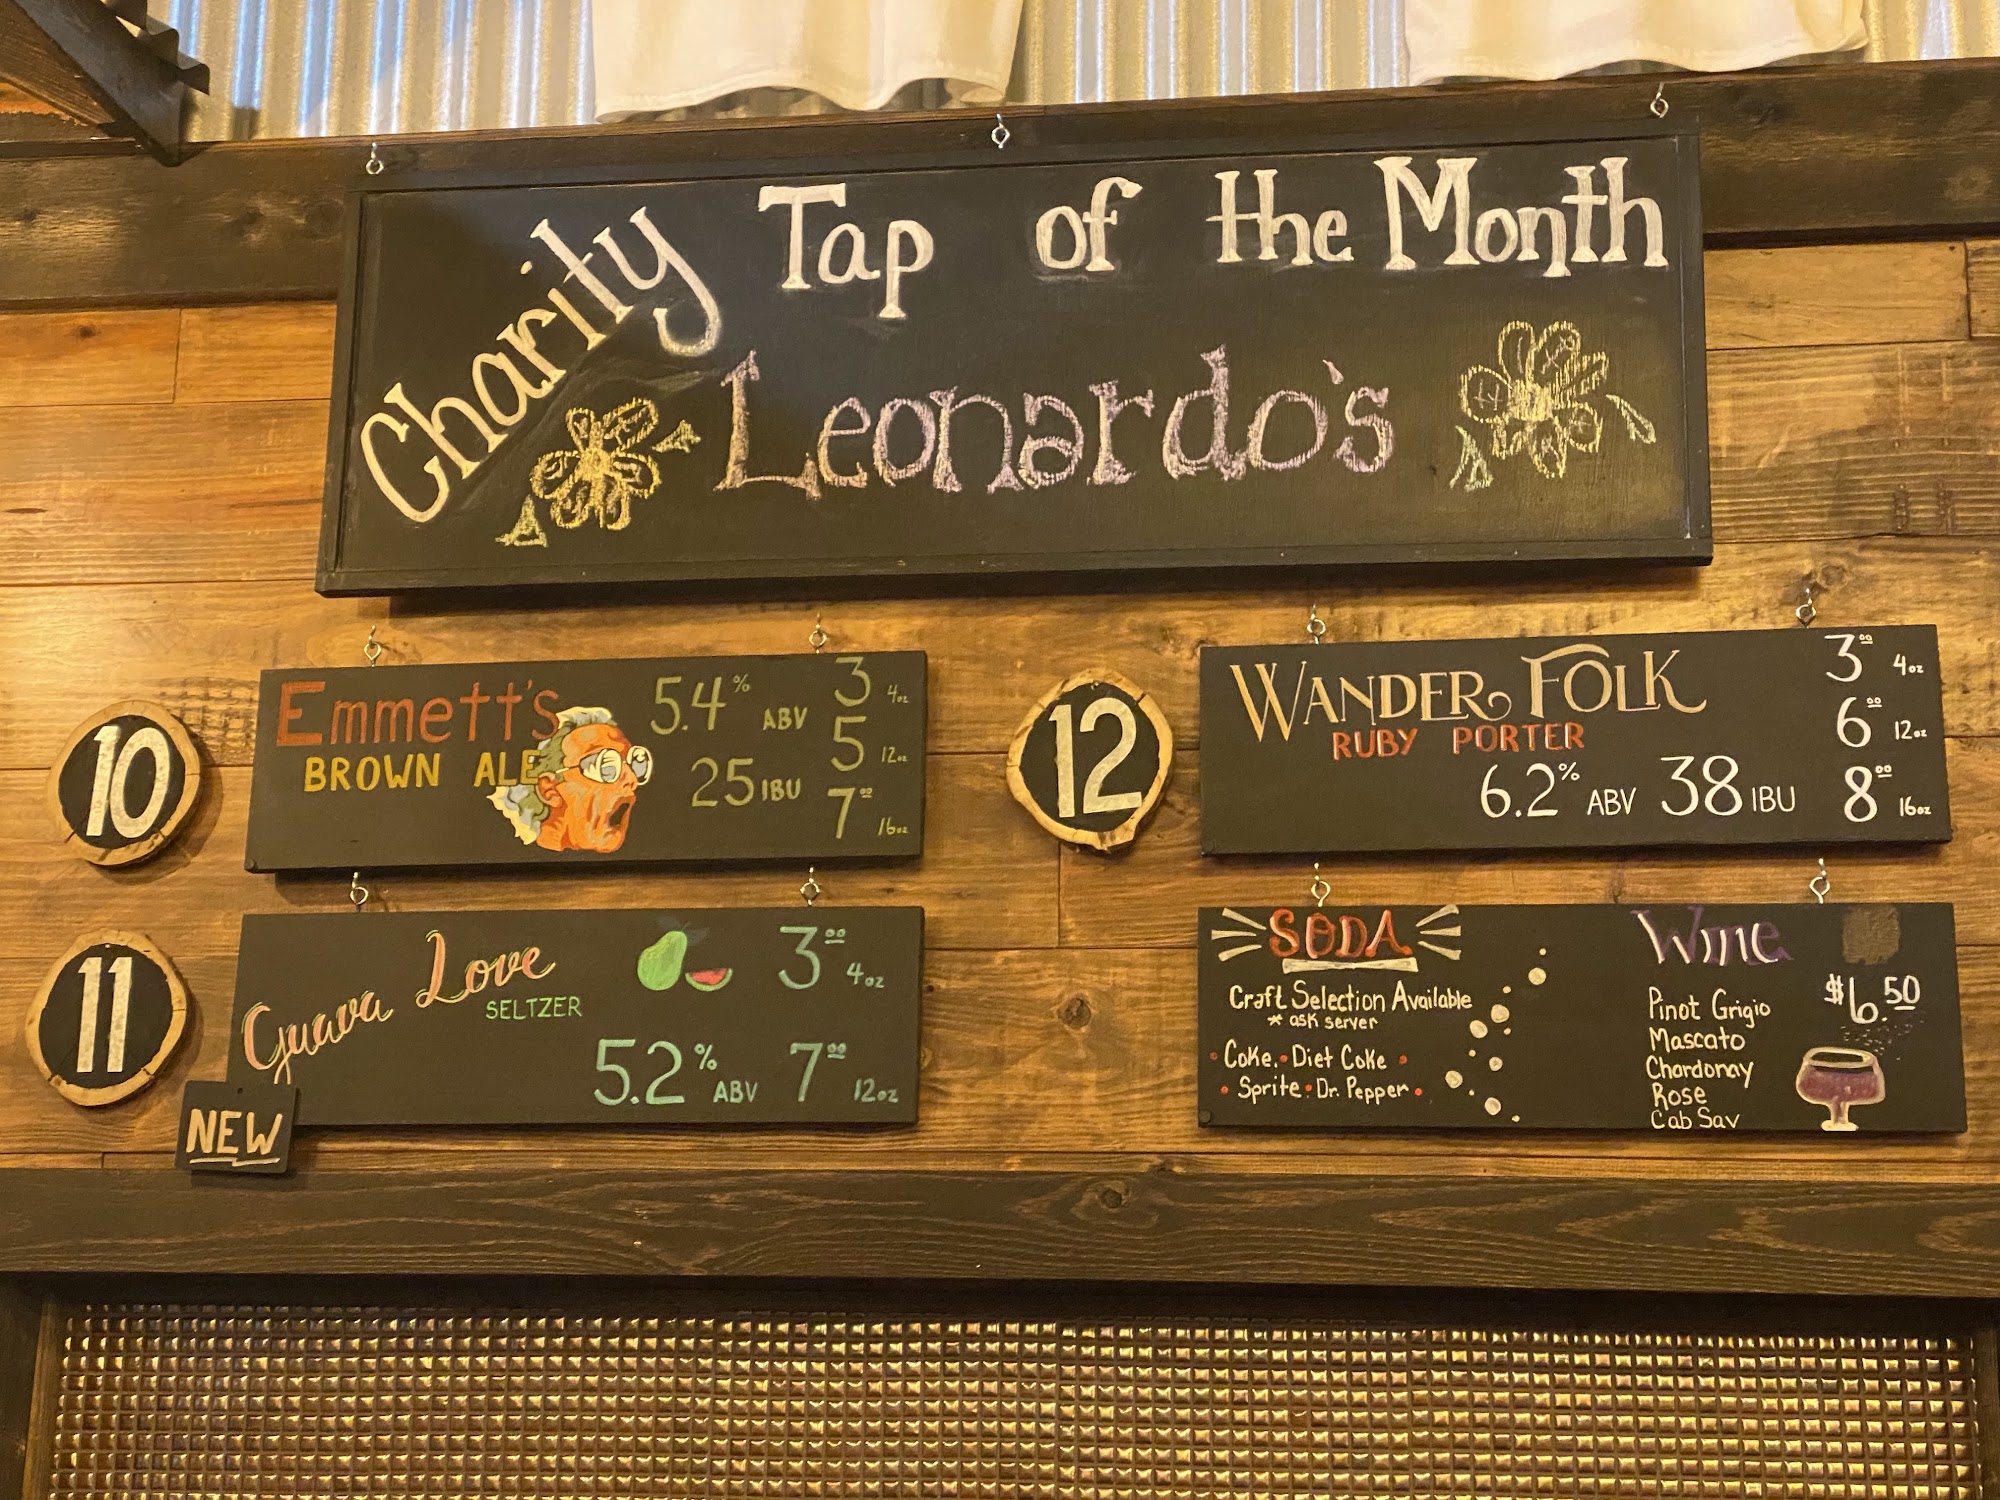 Charity Tap of the Month
Leonardo's
10
Emmett's
BROWN ALE
5.4% ABV
25 IBU
3 4oz
5 12oz
7.00 16oz
11
NEW
Guava Love
SELTZER
5.2% ABV
3.00 4oz
7.00 12oz
12
WANDER FOLK
RUBY PORTER
6.2% ABV 38 IBU
3.00 4oz
6.00 12oz
8.00 16oz
SODA
Craft Selection Available
* ask server
• Coke • Diet Coke •
• Sprite • Dr. Pepper •
Wine
$6.50
Pinot Grigio
Mascato
Chardonay
Rose
Cab Sav